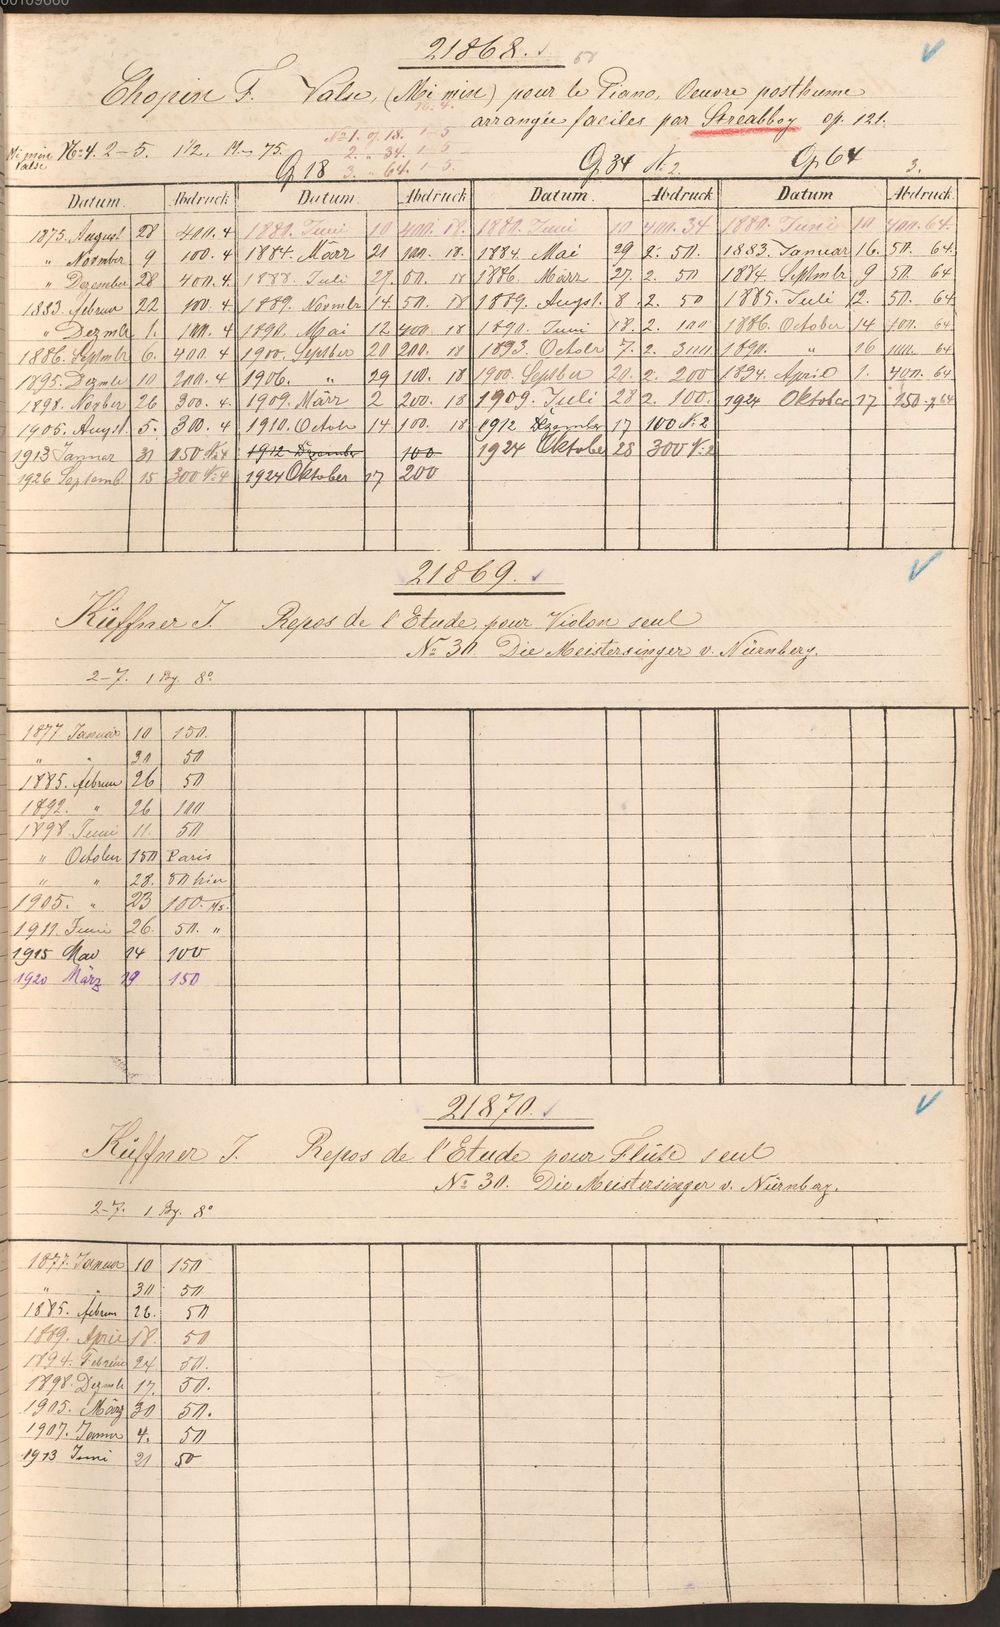 21868.
Chopin F. Valse, (Mi min) pour le Piano, Oeuvre posthume
arrangée faciles par Streabbog op. 121.
No 1. op 18. 1-5
2. " 34. 1-5
3. " 64. 1-5.
Mi min Valse No 4. 2-5. 1/2. 75.
Op 18 Op 34 No 2. Op 64 3.
Datum. Abdruck Datum. Abdruck Datum. Abdruck Datum Abdruck
1875. August 28 400. 4 1880. Juni 10 400. 18. 1880. Juni 10 400. 34 1880. Juni 10 400. 64.
" November 9 100. 4 1884. März 21 100. 18. 1884. Mai 29 2. 50. 1883. Januar 16. 50. 64.
" Dezember 28 400. 4 1888. Juli 27. 50. 18 1886. März 27. 2. 50 1884. Septmbr 9 50. 64
1883. februar 22 100. 4 1889. Novmbr 14. 50. 18 1889. Augst. 8. 2. 50 1885. Juli 12. 50. 64
" Dezmbr 1. 100. 4 1890. Mai 12 400. 18 1890. Juni 18. 2. 100 1886. October 14 100. 64.
1886. Septmbr 6. 400. 4 1900. Septber 20 200. 18 1893. Octobr 7. 2. 300 1890. " 16 100. 64
1895. Dezmbr 10 200. 4 1906. " 29 100. 18 1900. Septber 20. 2. 200 1894. April 1. 400. 64
1898. Novber 26 300. 4. 1909. März 2 200. 18 1909. Juli 28 2. 100. 1924 Oktober 17 150 64
1905. Augst. 5. 300. 4 1910. Octobr 14 100. 18 1912 Dezember 17 100 No 2
1913 Januar 31 150 No 4 1912 Dezember 100 1924 Oktober 28 300 No 2
1926 Septemb. 15 300 No 4 1924 Oktober 17 200
21869.
Küffner J. Repos de l'Etude, pour Violon seul
No 30. Die Meistersinger v. Nürnberg.
2-7. 1 Bg. 8o
1877 Januar 10 150.
" " 30 50
1885. februar 26 50
1892. " 26 100
1898. Juni 11. 50
" October 150 Paris
" " 28. 50 hier
1905. " 23 100.
1911. Juni 26. 50. "
1915 Mai 14 100
1920 März 19 150
21870.
Küffner J. Repos de l'Etude pour Flûte seul
No 30. Die Meistersinger v. Nürnberg.
2-7. 1 Bg. 8o
1877. Januar 10 150
" " 30 50
1885. februar 26. 50
1889. April 18. 50
1894. Februar 24 50.
1898. Dezmbr 17. 50.
1905. März 30 50.
1907. Januar 4. 50
1913 Juni 21 50